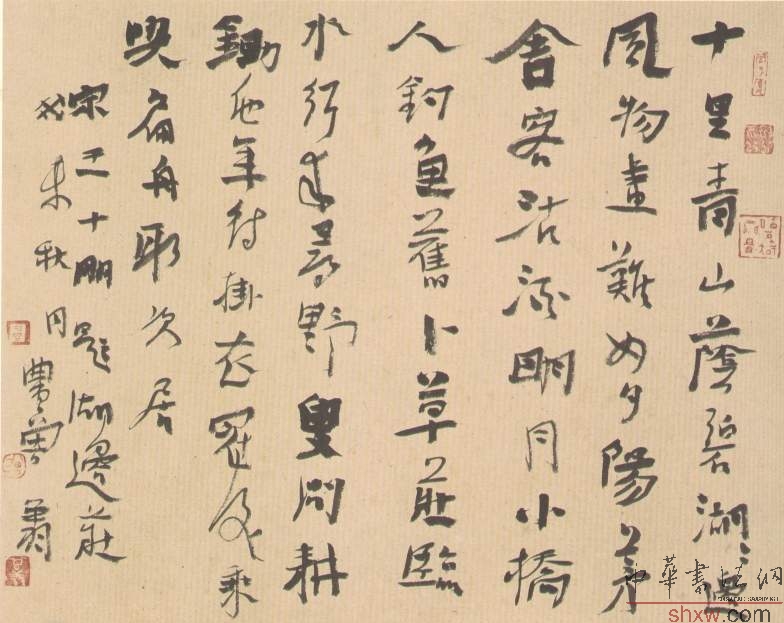 十里青山蔭碧湖〻邊
風物畫難如夕陽茅
舍客沽酒明月小橋
人釣魚舊卜草莊臨
水竹來尋野叟問耕
鋤他年待掛衣冠後乘
興扁舟取次居
宋王十朋題湖邊莊
癸未秋月
中華書法網
shxw.com